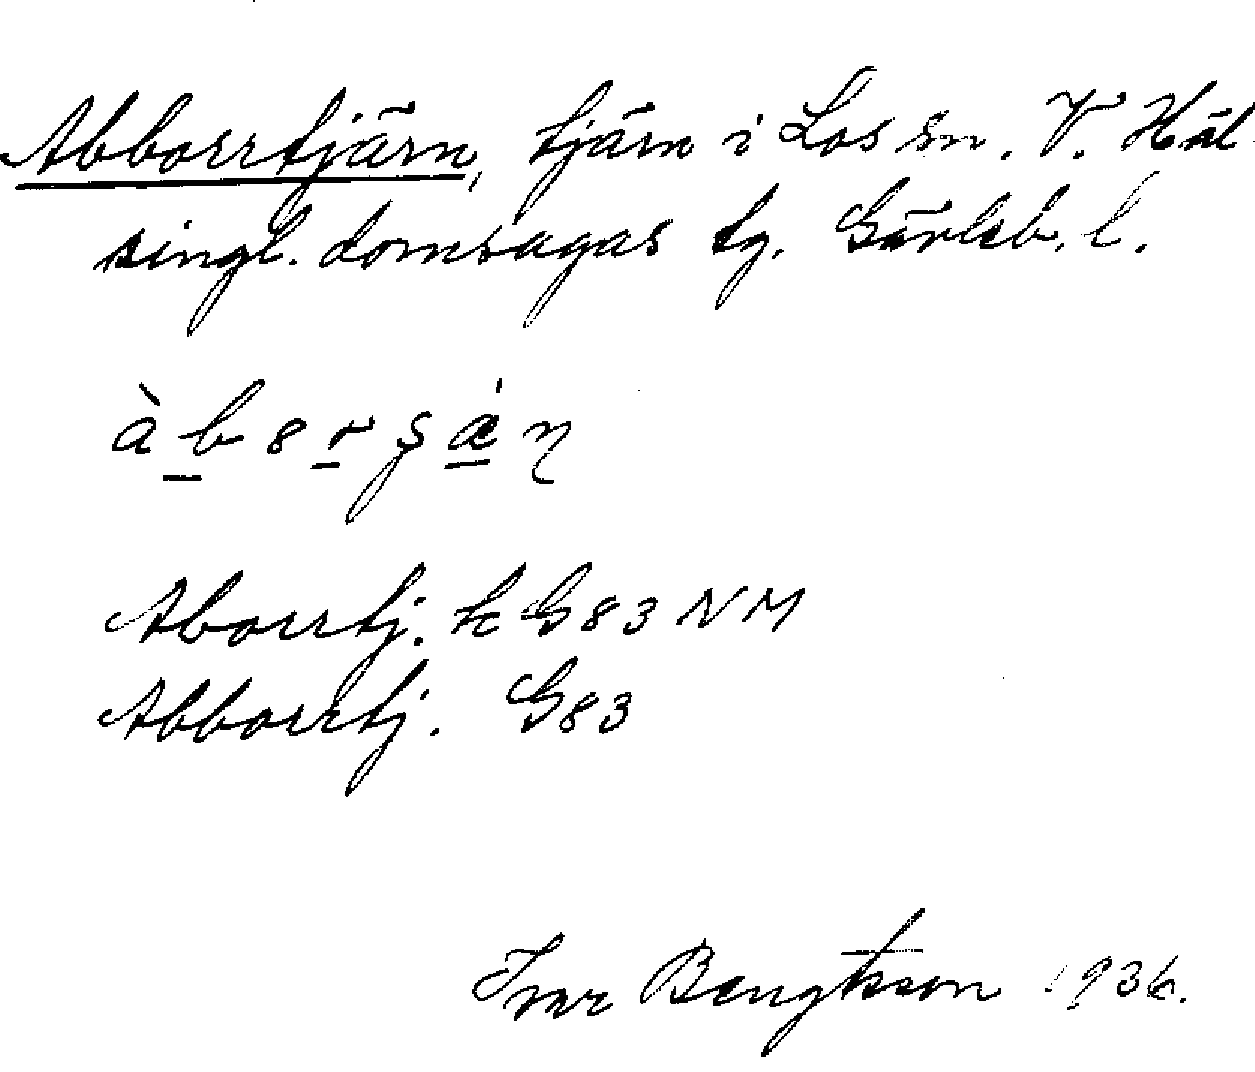 Abborrtjärn, tjärn i Los sn. V. Häl-
singl. domsagas tg. Gävleb. l.
àb8rʂǽn̥
Aborrtj. k G83 NM
Abborrtj. G83
Ivar Bengtsson 1936.